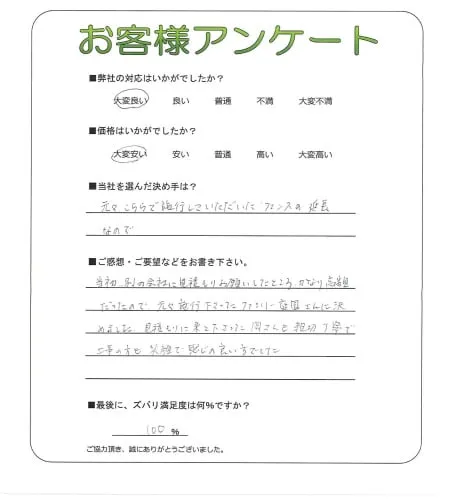 お客様アンケート
■弊社の対応はいかがでしたか？
大変良い 良い 普通 不満 大変不満
■価格はいかがでしたか？
大変安い 安い 普通 高い 大変高い
■当社を選んだ決め手は？
元々こちらで施行していただいたフェンスの延長
なので
■ご感想・ご要望などをお書き下さい。
当初、別の会社に見積もりお願いしたところ、かなり高額
だったので、元々施行下さったファミリー庭園さんに決
めました。見積もりに来て下さった岡さんも親切丁寧で
工事の方も笑顔で感じの良い方でした
■最後に、ズバリ満足度は何％ですか？
100 %
ご協力頂き、誠にありがとうございました。